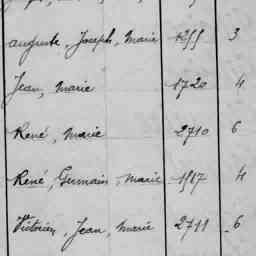 Auguste, Joseph, Marie 1255 3
Jean, Marie 1720 4
René, Marie 2710 6
René, Germain, Marie 1517 4
Victorien, Jean, Marie 2711 6